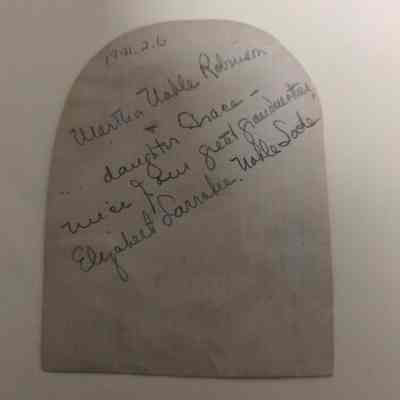 1991.2.6
Martha Noble Robinson
+
daughter Grace –
niece of our great grandmother,
Elizabeth Larrabee Noble Soole